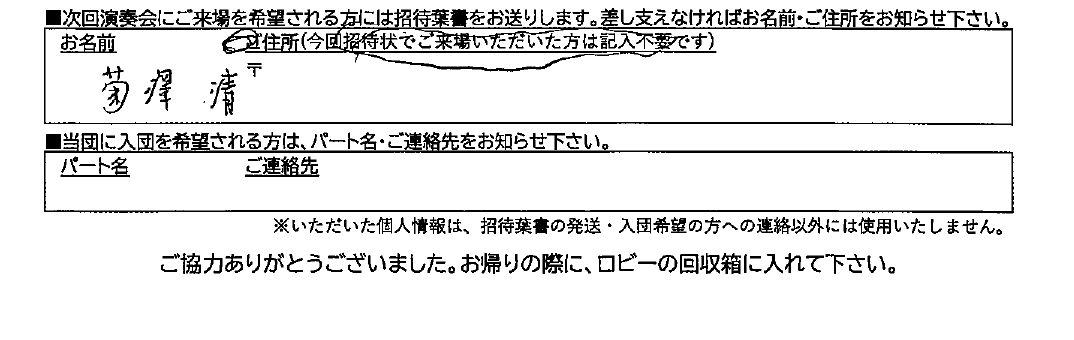 ■次回演奏会にご来場を希望される方には招待葉書をお送りします。差し支えなければお名前・ご住所をお知らせ下さい。
お名前 ご住所(今回招待状でご来場いただいた方は記入不要です)
菊澤 清 〒
■当団に入団を希望される方は、パート名・ご連絡先をお知らせ下さい。
パート名 ご連絡先
※いただいた個人情報は、招待葉書の発送・入団希望の方への連絡以外には使用いたしません。
ご協力ありがとうございました。お帰りの際に、ロビーの回収箱に入れて下さい。